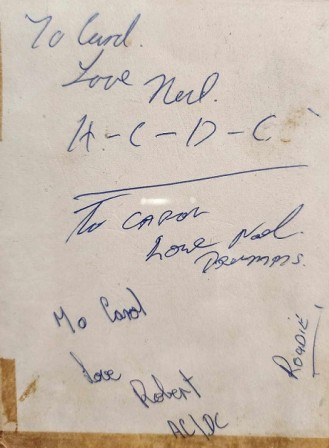 To Carol.
Love Neil.
A - C - D - C
To CAROL
Love Noel.
DRUMMS.
To Carol
love
Robert
AC/DC
ROADIE.